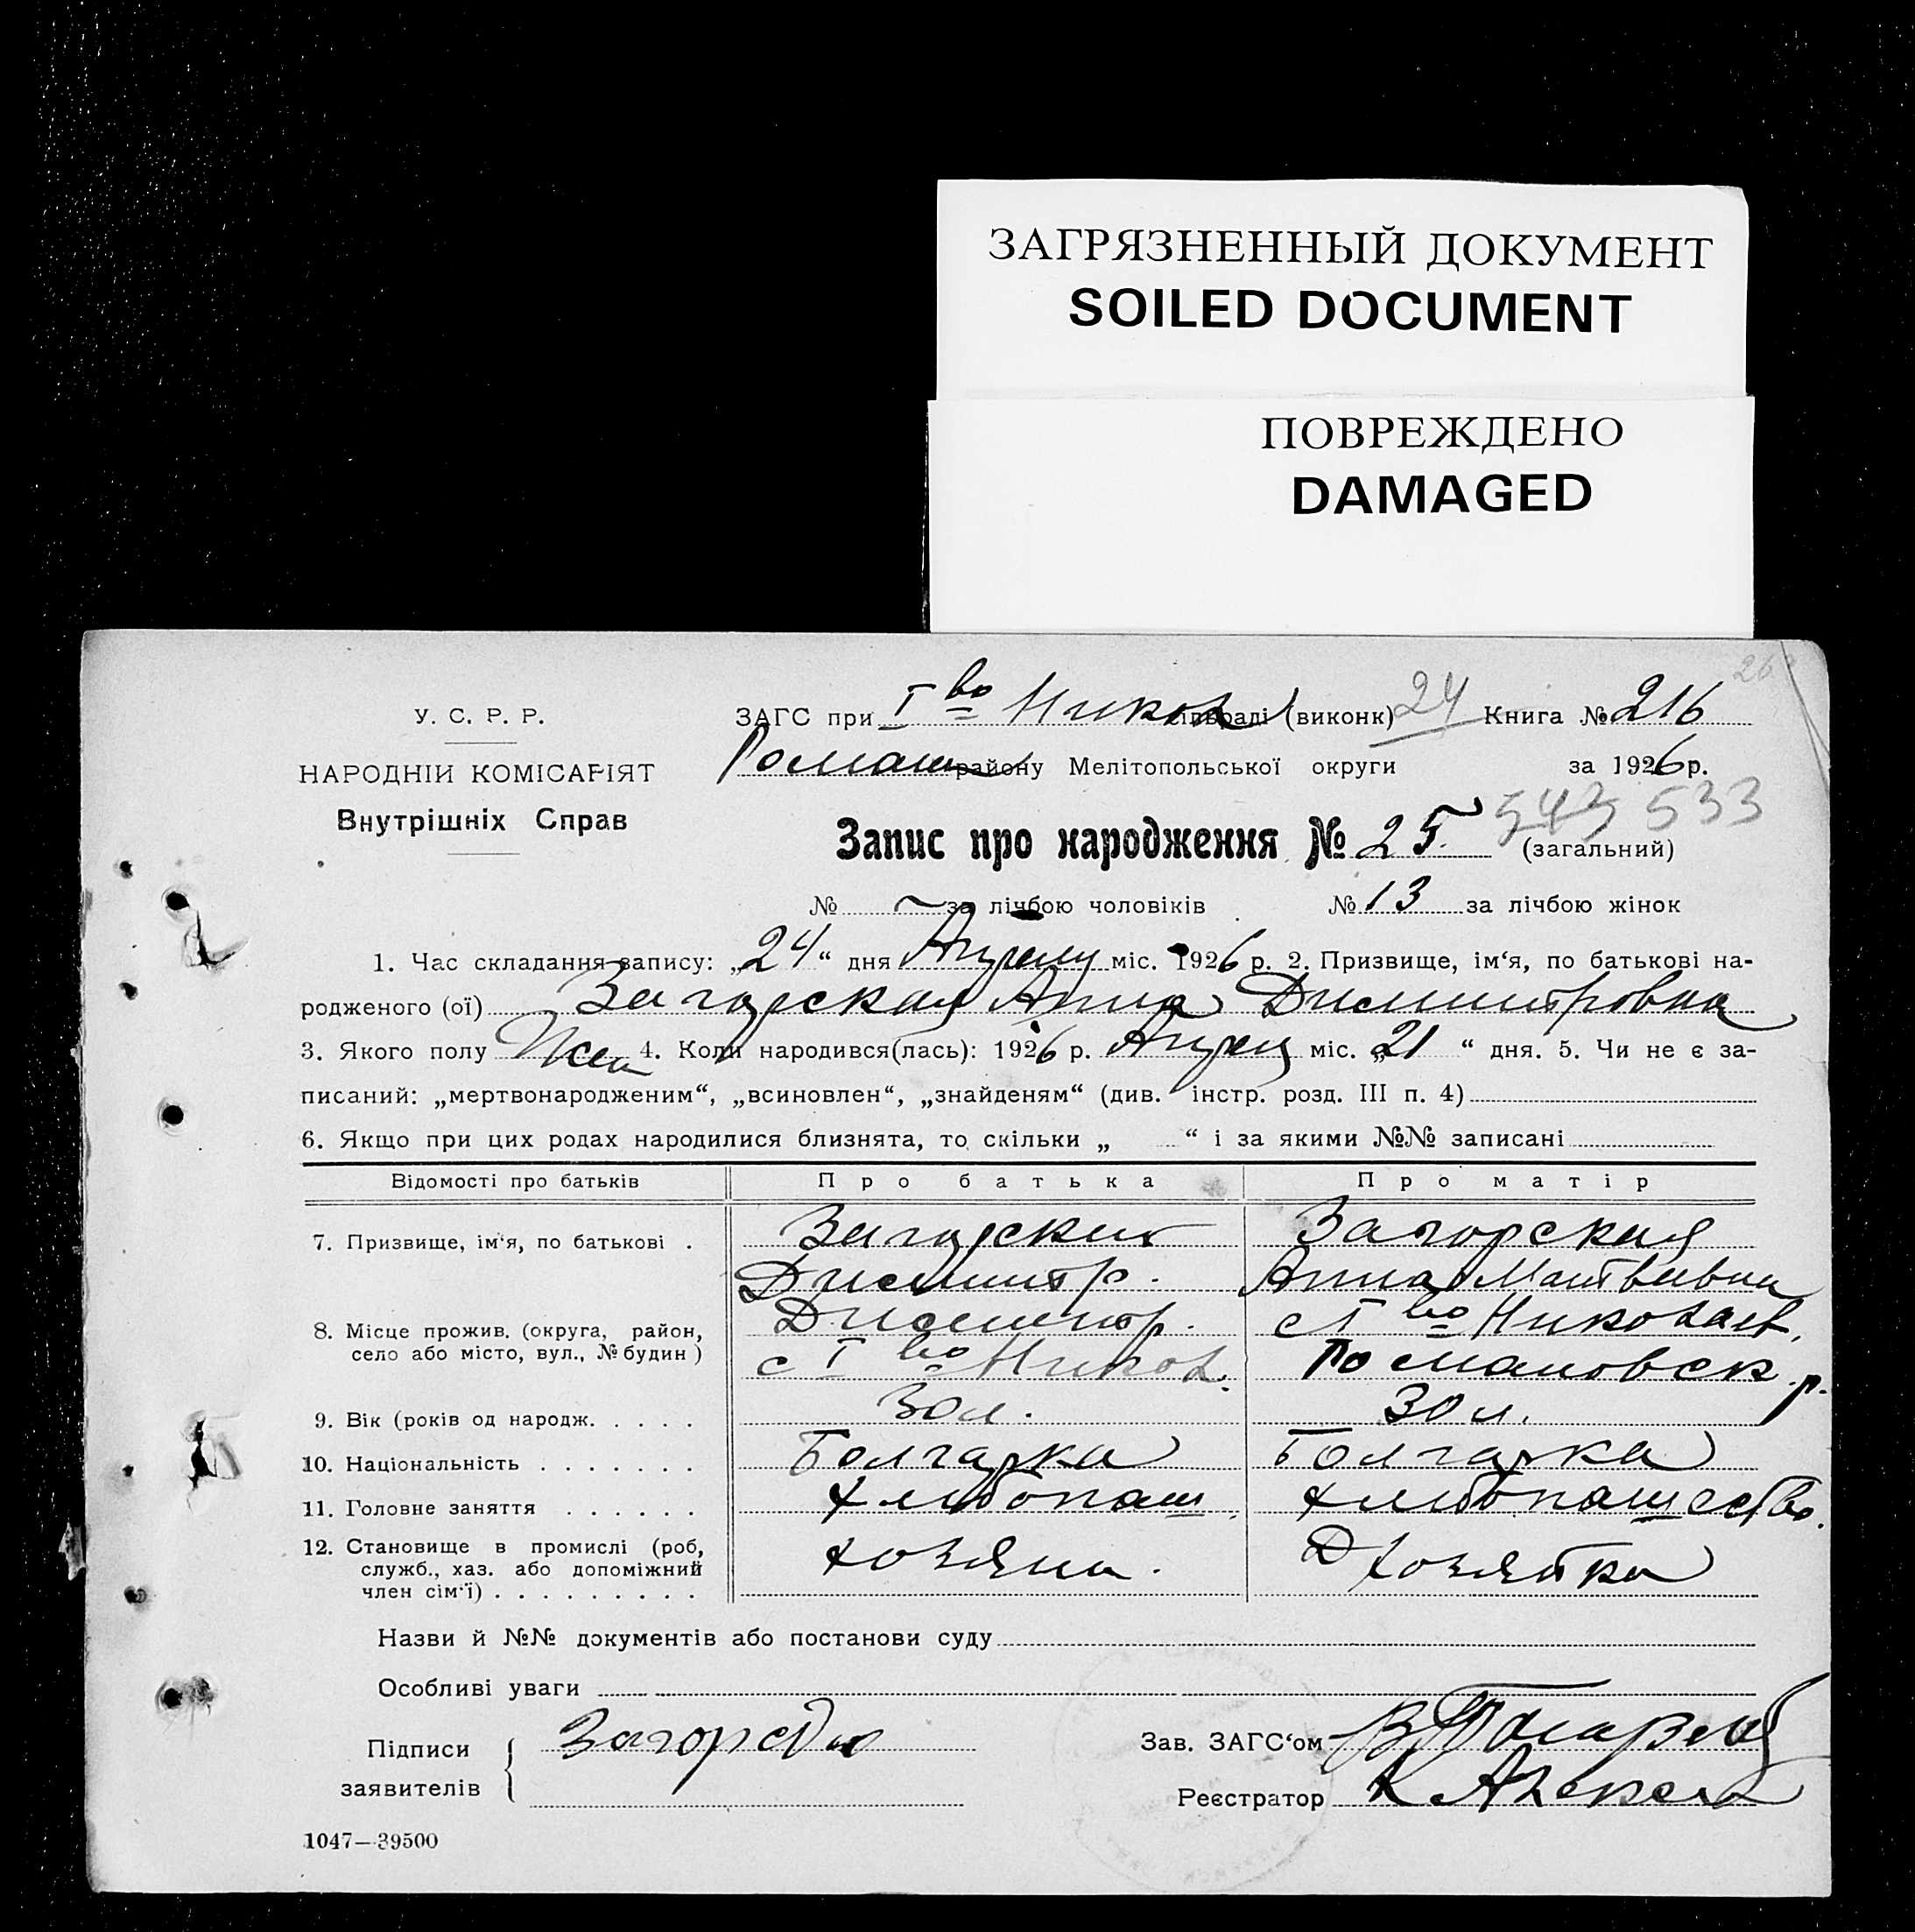 ЗАГРЯЗНЕННЫЙ ДОКУМЕНТ
SOILED DOCUMENT
ПОВРЕЖДЕНО
DAMAGED
У. С. Р. Р.
НАРОДНІЙ КОМІСАРІЯТ
Внутрішніх Справ
ЗАГС при Iво Никол сільраді (виконк) 24 Книга № 216
Роман району Мелітопольської округи за 1926 р.
Запис про народження № 25. (загальний) 543 533
№ — за лічбою чоловіків № 13 за лічбою жінок
1. Час складання запису: „24“ дня Апрелу міс. 1926 р. 2. Призвище, ім‘я, по батькові на-
родженого (ої) Загорская Анна Димитровна
3. Якого полу Жен 4. Коли народився(лась): 1926 р. Апрел міс. „21“ дня. 5. Чи не є за-
писаний: „мертвонародженим“, „всиновлен“, „знайденям“ (див. інстр. розд. III п. 4)
6. Якщо при цих родах народилися близнята, то скільки „ “ і за якими №№ записані
Відомості про батьків Про батька Про матір
7. Призвище, ім‘я, по батькові . Загорский Загорская
Димитр. Анна Матвеевна
Димитр. с Iво Николаев.
8. Місце прожив. (округа, район,
село або місто, вул., № будин) с Iво Никол. Романовск р.
9. Вік (років од народж. . . . . 30 л. 30 л.
10. Національність . . . . . . . Болгарка Болгарка
11. Головне заняття . . . . . . хлибопаш. хлибопашество.
12. Становище в промислі (роб,
служб., хаз. або допоміжний
член сім‘ї) . . . . . . . . . хозяин. Д хозяйка
Назви й №№ документів або постанови суду
Особливі уваги
Підписи
заявителів
Зав. ЗАГС‘ом
Реєстратор
1047—39500